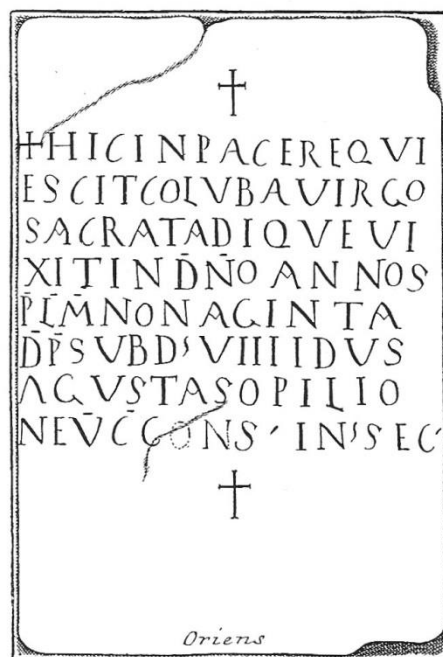 +HICINPACEREQVI
ESCITCOLVBAVIRGO
SACRATADIQVEVI
XITIND̄N̄OANNOS
P̄L̄M̄NONAGINTA
D̄P̄SUBD'VIIIIDUS
AGVSTASOPILIO
NEV̄C̄CONS'IN'SEC'
Oriens